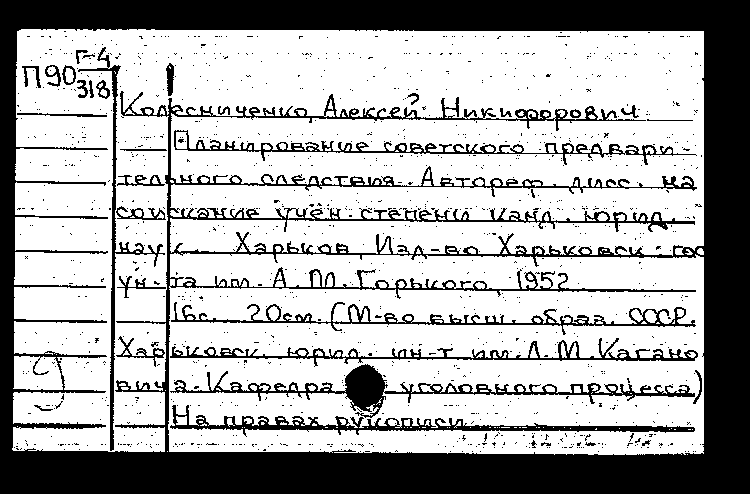 П90 Г-4
318
Колесниченко, Алексей Никифорович
Планирование советского предвари-
тельного следствия. Автореф. дисс. на
соискание учён. степени канд. юрид.
наук. Харьков, Изд-во Харьковск. гос
ун-та им. А. М. Горького, 1952
16с. 20см. (М-во высш. образ. СССР.
Харьковск. юрид. ин-т им. Л. М. Кагано
вича. Кафедра уголовного процесса)
На правах рукописи